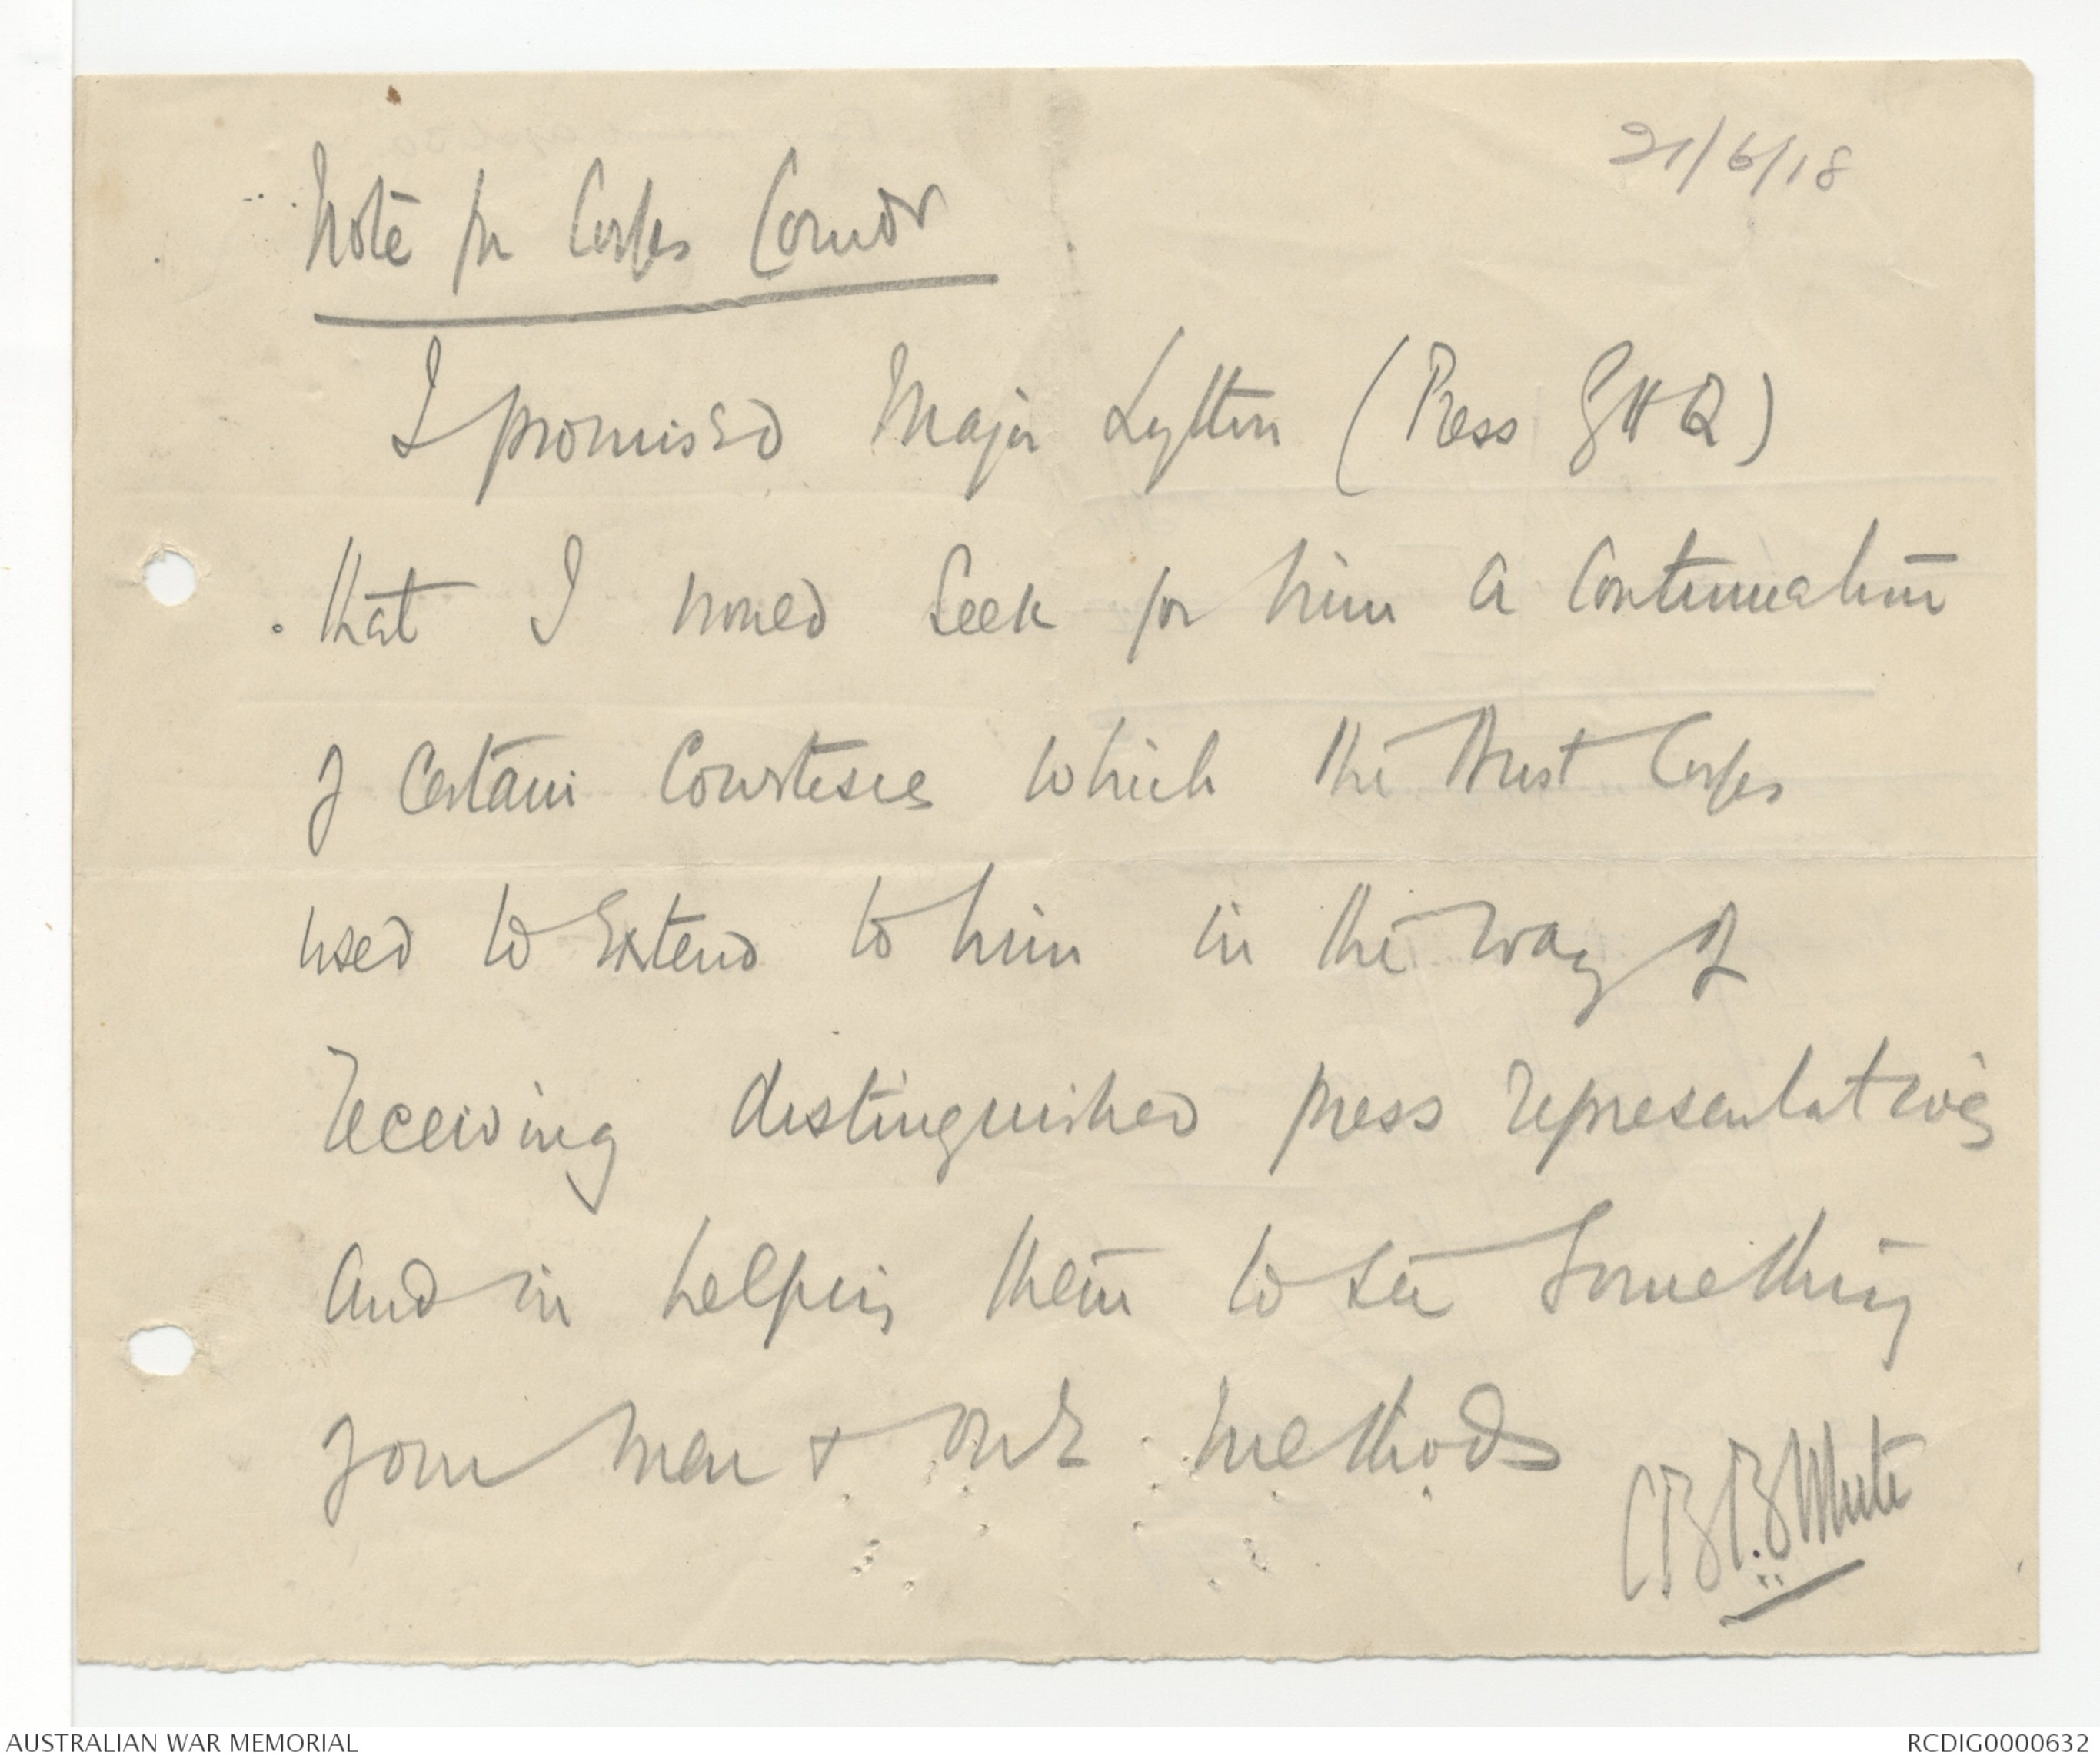 21/6/18
Note for Corps Comdr
I promised Major Lytton (Press GHQ)
that I would seek for him a continuation
of certain courtesies which the Aust Corps
used to extend to him in the way of
receiving distinguished press representatives
and in helping them to see something
of our men & our methods
CBB White
AUSTRALIAN WAR MEMORIAL
RCDIG0000632